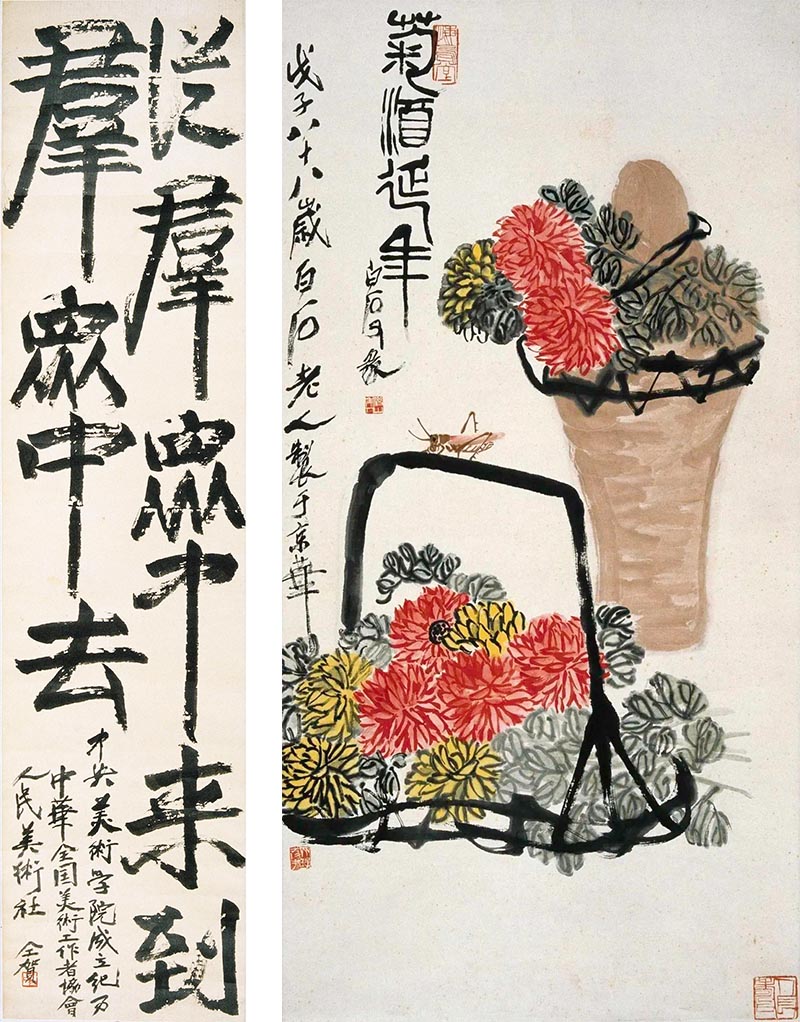 從羣眾中来到
羣眾中去
中央美術学院成立纪念
中華全国美術工作者協會
人民美術社 仝贺
菊酒延年
白石又篆
戊子八十八歲白石老人製于京華